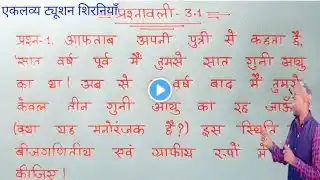 एकलव्य ट्यूशन शिरनियाँ
प्रश्नावली- 3.1
प्रश्न-1. आफताब अपनी पुत्री से कहता है,
'सात वर्ष पूर्व मैं तुमसे सात गुनी आयु
का था। अब से वर्ष बाद मैं तुमसे
केवल तीन गुनी आयु का रह जाऊँ
(क्या यह मनोरंजक है?) इस स्थिति
बीजगणितीय एवं ग्राफीय रूपों में
कीजिए।